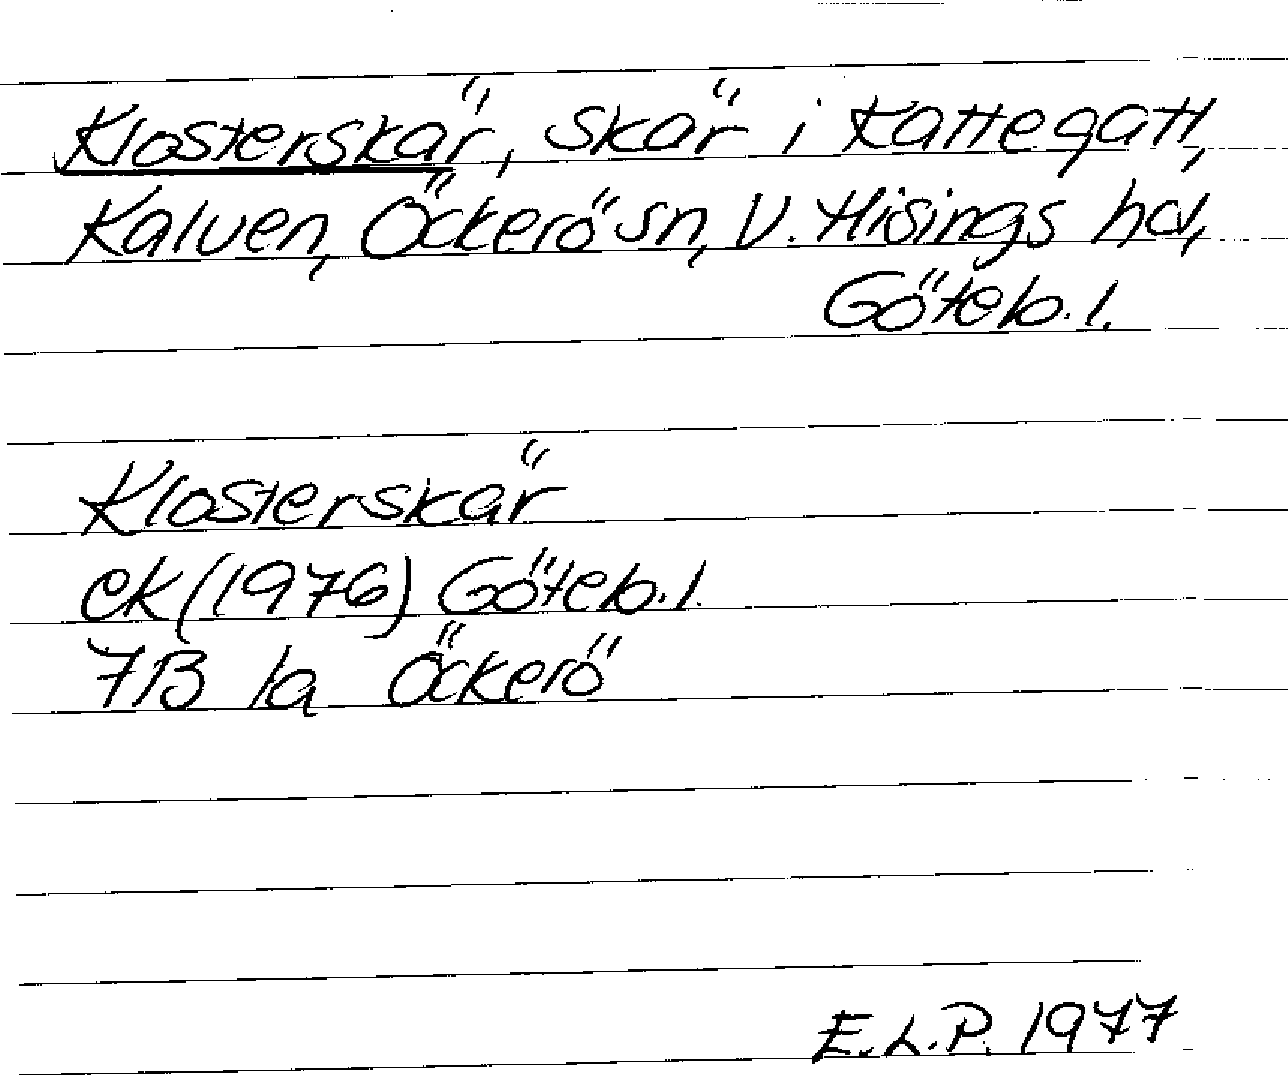 Klosterskär, skär i Kattegatt,
Kalven, Öckerö sn, V. Hisings hd,
Göteb. l.
Klosterskär
ek (1976) Göteb. l.
7B 1a Öckerö
E.L.P. 1977